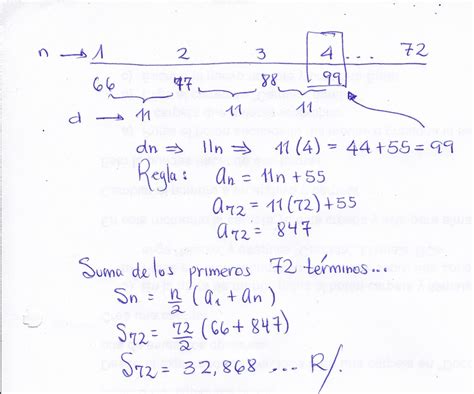 n → 1 2 3 4 ... 72
66 77 88 99
d → 11 11 11
dn ⇒ 11n ⇒ 11(4) = 44+55 = 99
Regla: an = 11n + 55
a72 = 11(72)+55
a72 = 847
Suma de los primeros 72 términos...
Sn = n/2 (a1 + an)
S72 = 72/2 (66 + 847)
S72 = 32,868 ... R/.